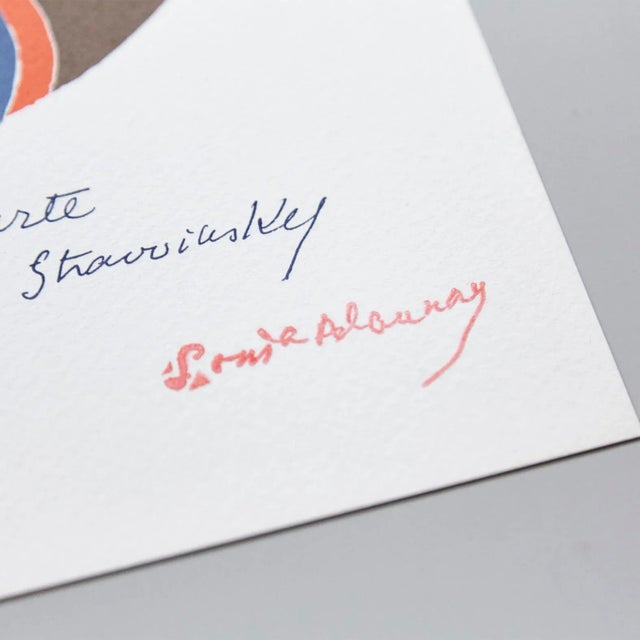 arte
Stravinsky
Sonia Delaunay